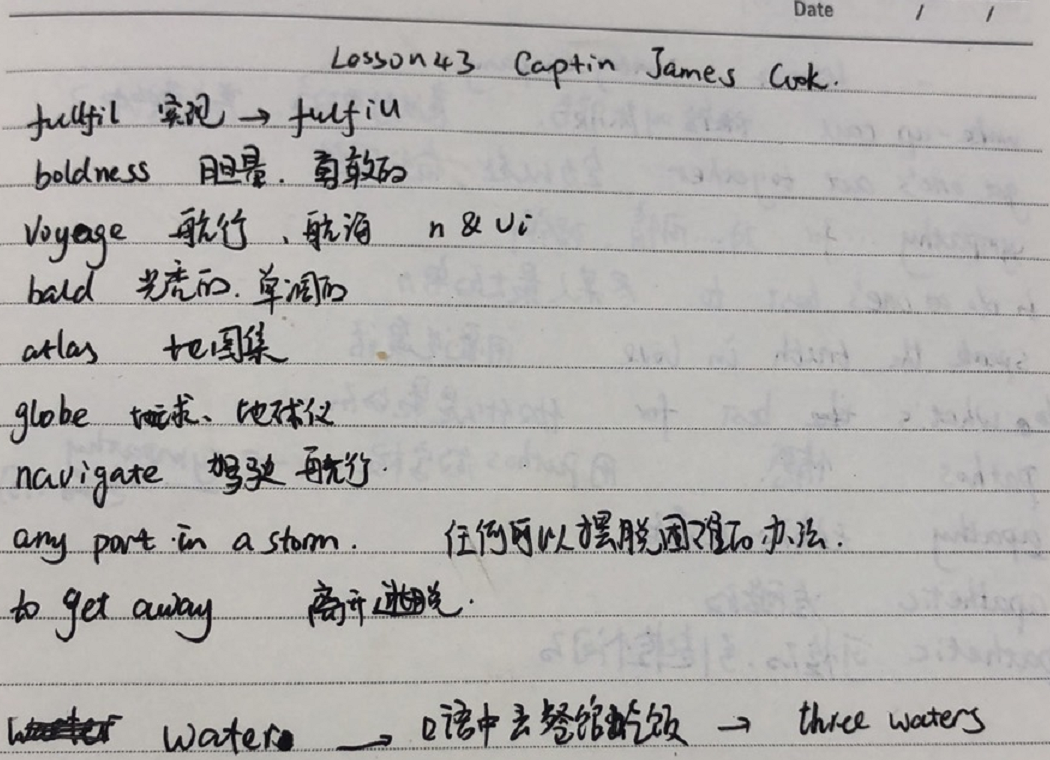 Date / /
Lesson 43 Captin James Cook.
fullfil 实现 → fulfill
boldness 胆量、勇敢的
voyage 航行、航海 n & vi
bald 光秃的、单调的
atlas 地图集
globe 地球、地球仪
navigate 驾驶 航行.
any port in a storm. 任何可以摆脱困难的办法.
to get away 离开 逃脱.
water → 口语中去餐馆吃饭 → three waters